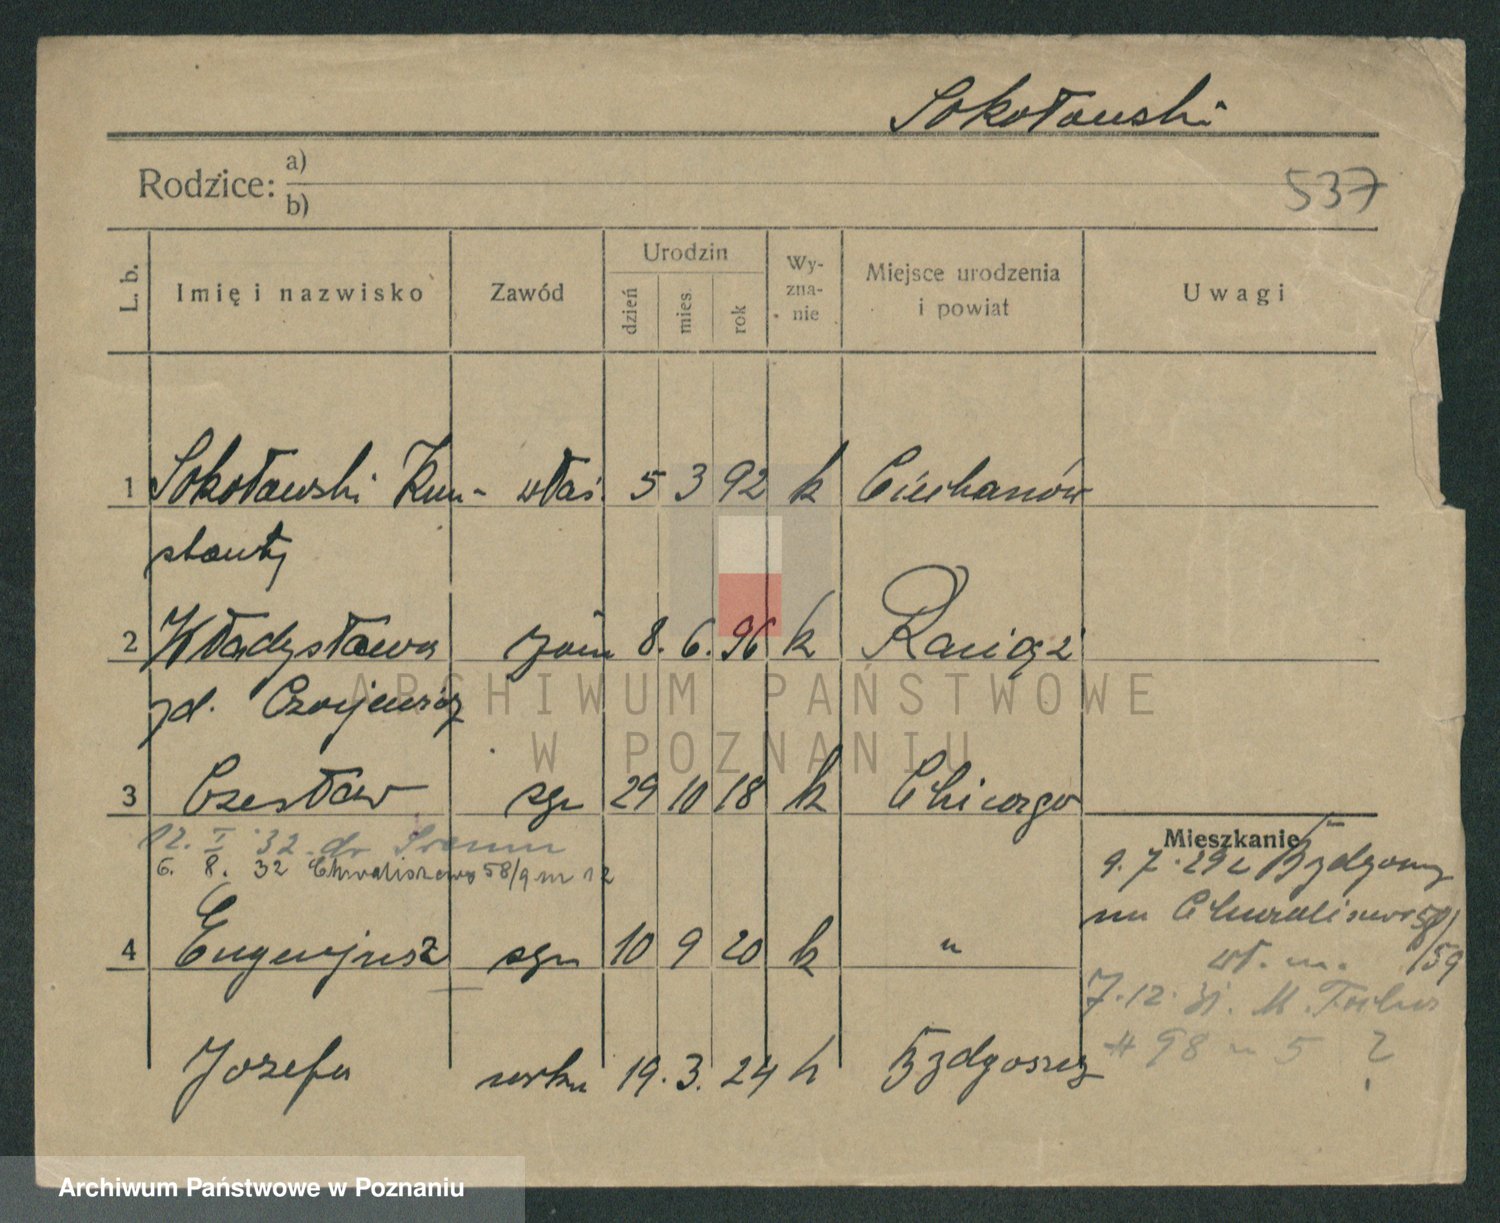 Sokołowski
Rodzice: a)
b)
537
L. b.
Imię i nazwisko
Zawód
Urodzin
dzień
mies.
rok
Wy-
zna-
nie
Miejsce urodzenia
i powiat
Uwagi
1 Sokoławski Kun- właś. 5 3 92 k Ciechanów
stanty
2 Władysława żon 8. 6. 96 k Raciąż
zd. Czyjewicz
3 Czesław syn 29 10 18 k Chicago
12. I 32 do Śremu
6. 8. 32 Chwaliszewo 58/9 m 12
Mieszkanie
9. 7. 29 z Bydgoszcz
na Chwaliszewo 58/
59
wł. m.
7. 12. 31. M. Focha
98 m 5 ?
4 Eugenjusz syn 10 9 20 k "
Józefa córka 19. 3. 24 k Bydgoszcz
ARCHIWUM PAŃSTWOWE
W POZNANIU
Archiwum Państwowe w Poznaniu